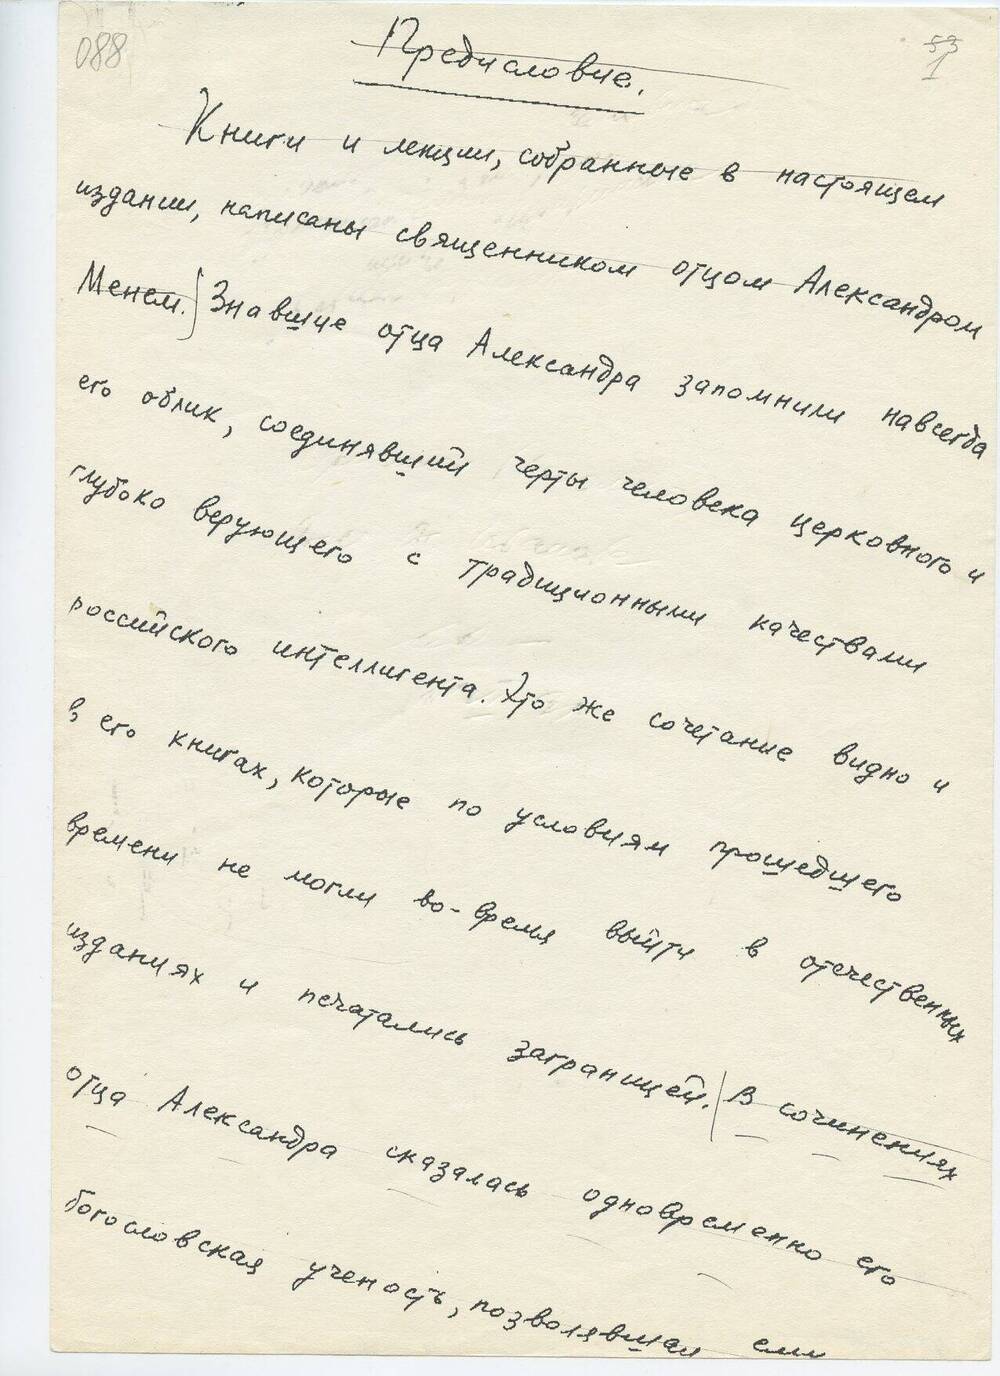 088
53
1
Предисловие.
Книги и лекции, собранные в настоящем
издании, написаны священником отцом Александром
Менем. Знавшие отца Александра запомнили навсегда
его облик, соединявший черты человека церковного и
глубоко верующего с традиционными качествами
российского интеллигента. Это же сочетание видно и
в его книгах, которые по условиям прошедшего
времени не могли во-время выйти в отечественных
изданиях и печатались заграницей. В сочинениях
отца Александра сказалась одновременно его
богословская ученость, позволявшая ему